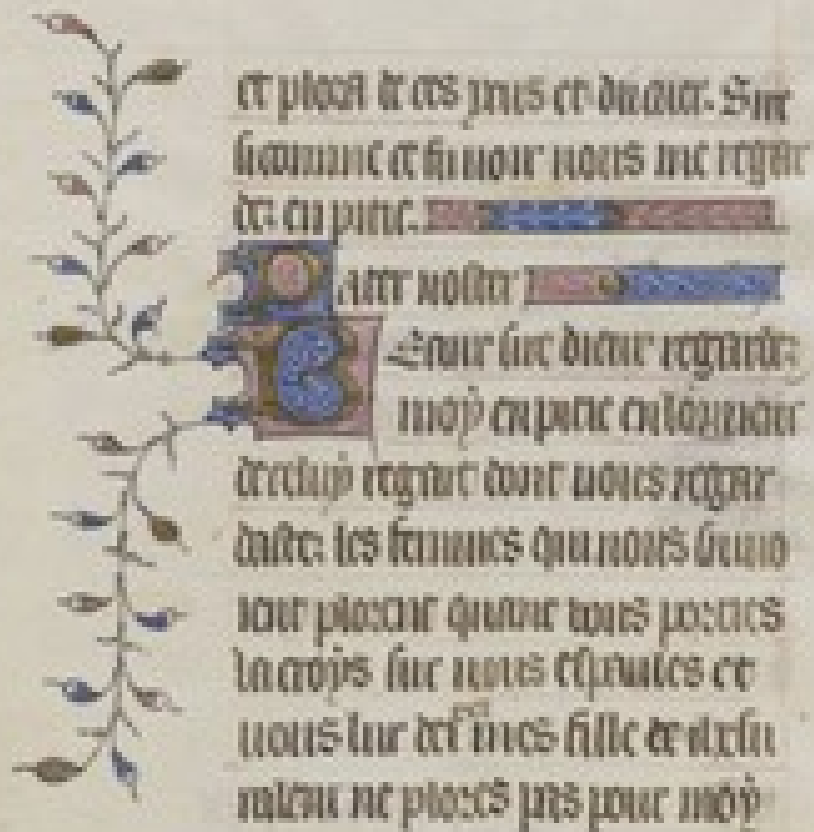 et plora de ces yeus et du cuer. Sire
si comme ce fu voir vous me regar
dez en pitie.
Pater noster
Beaux sire dieux regardez
moy en pitie en lonneur
de celuy regart dont vous regar
dastez les femmes qui vous
plorant quant vous porties
la croys sur vous espaules et
vous leur fille de
salem ne plores pas pour moy